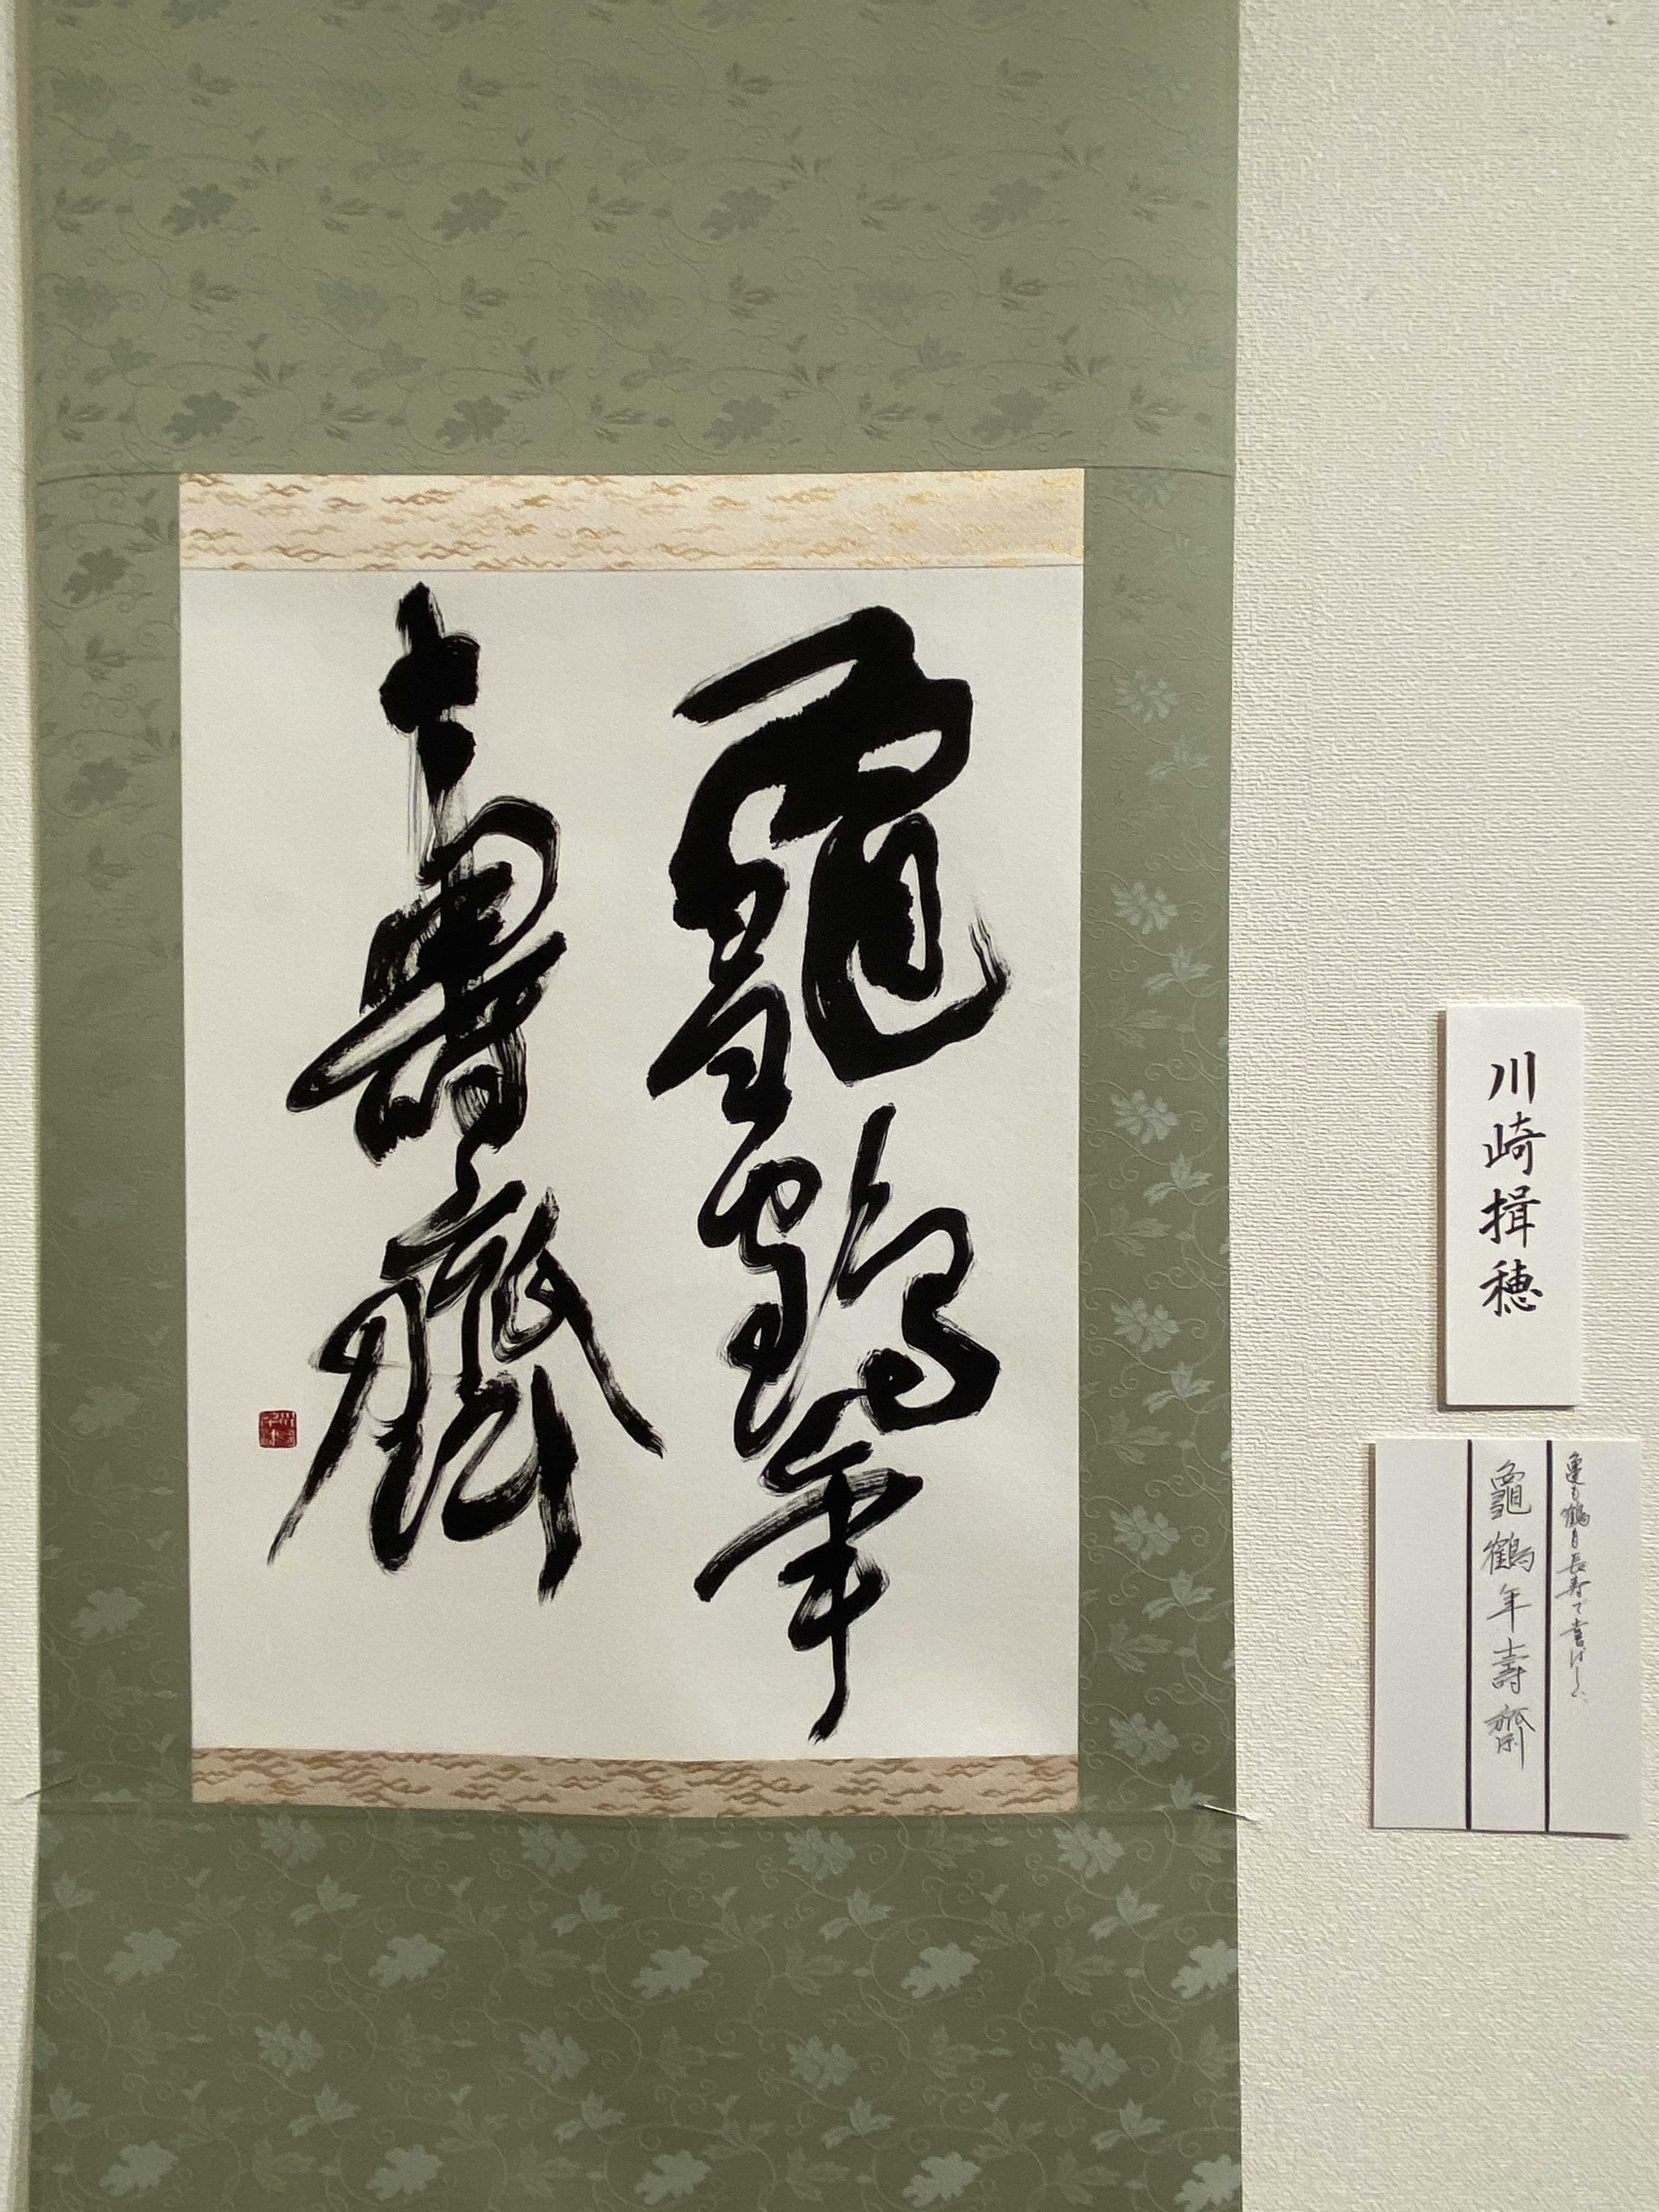 龜鶴年
壽齋
川崎揖穂
亀も鶴も長寿で喜ばしい
龜鶴年壽齋